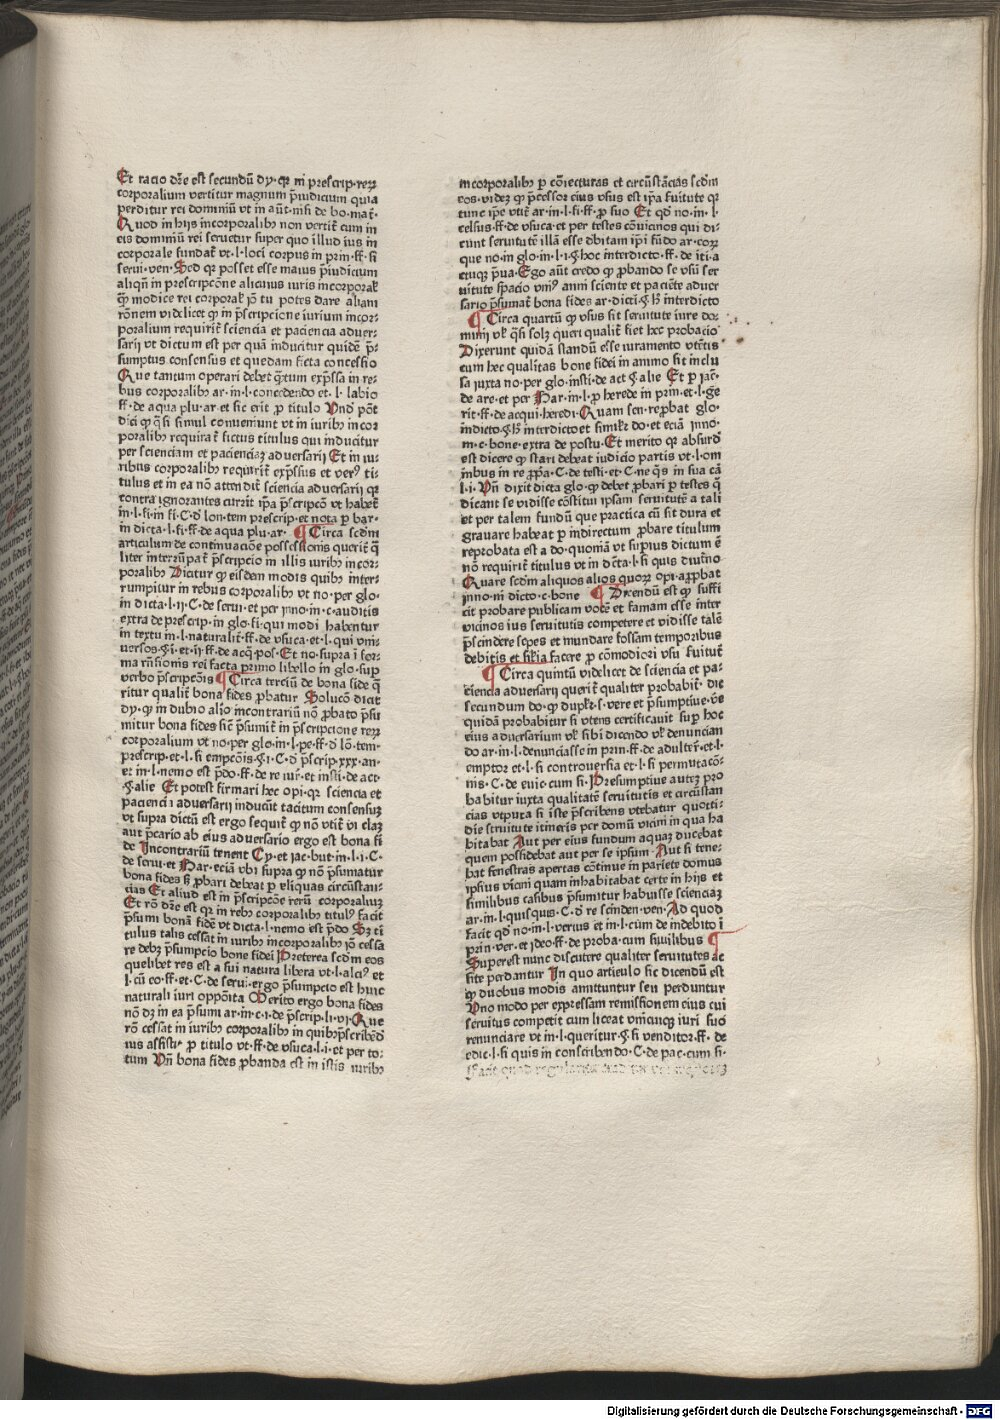 Et racio dr̄e est secundū dy· qr in prescrip· reꝝ
corporalium vertitur magnum p̄iudicium quia
perditur rei dominiū vt in aūt· nisi de bo· mat̄·
Quod in hijs incorporalibꝫ non vertit̄ cum in
eis dominiū rei seruetur super quo illud ius in
corporale fundat̄ vt· l· loci corpus in prin· ff· si
serui· ven· Sed qr posset esse maius p̄iudicium
aliqn̄ in prescripcōne alicuius iuris incorporal̄
qꝫ modice rei corporal̄ iō tu potes dare aliam
rōnem videlicet ꝙ in p̄scripcione iurium incor-
poralium requirit̄ sciencia et paciencia aduer-
sarij vt dictum est per quā inducitur quidē p̄-
sumptus consensus et quedam ficta concessio
Que tantum operari debet q̄tum exp̄ssa in re-
bus corporalibꝫ ar· in· l· concedendo et· l· labio
ff· de aqua plu· ar· et sic erit ꝓ titulo Vnd̄ pōt
dici ꝙ q̄si simul conueniunt vt in iuribꝫ incor
poralibꝫ requirat̄ fictus titulus qui inducitur
per scienciam et pacienciaꝫ aduersarij Et in iu-
ribus corporalibꝫ requirit̄ exp̄ssus et verꝰ ti-
tulus et in ea nō attendit̄ sciencia aduersarij qr
contra ignorantes currit ip̄a p̄scripcō vt habet̄
in· l· fi· in fi· C· d̄ lon· tem prescrip· et nota ꝑ bar·
in dicta· l· fi· ff· de aqua plu· ar· ¶ Circa scd̄m
articulum de continuacōe possessionis querit̄ q̄
liter interrūpat̄ p̄scripcio in illis iuribꝫ incor-
poralibꝫ Dicitur ꝙ eisdem modis quibꝫ inter-
rumpitur in rebus corporalibꝫ vt no· per glo·
in dicta· l· ij· C· de serui· et per inno· in· c· auditis
extra de prescrip· in glo· fi· qui modi habentur
in textu in· l· naturalit̄· ff· de vsuca· et· l· qui vni-
uersos· §· i· et· ij· ff· de acq̄· pos· Et no· supra ī for-
ma rn̄sionis rei facta primo libello in glo· sup̲
verbo p̄scripcōis ¶ Circa terciū de bona fide q̄
ritur qualit̄ bona fides ꝓbatur Solucō dicit
dy· ꝙ in dubio alio incontrariū nō ꝓbato p̄su
mitur bona fides sic̄ p̄sumit̄ in p̄scripcione reꝝ
corporalium vt no· per glo· in· l· pe· ff· d̄ lō· tem·
prescrip· et· l· si empcōis· §· i· C· d̄ p̄scrip· xxx· an·
et in· l· nemo est p̄do· ff· de re iur̄· et insti· de act·
§· alie Et potest firmari hec opi· qr sciencia et
paciencia aduersarij inducūt tacitum consensuꝫ
vt supra dictū est ergo sequit̄ ꝙ nō vtit̄ vi claꝫ
aut p̄cario ab eius aduersario ergo est bona fi
de Incontrariū tenent Cy· et jac· but· in· l· i· C·
de serui· et Bar· eciā vbi supra ꝙ nō p̄sumatur
bona fides sꝫ ꝓbari debeat ꝑ aliquas circūstan-
cias Et aliud est in p̄scripcōe rerū corporaliuꝫ
Et rō dr̄e est qr in rebꝫ corporalibꝫ titulꝰ facit
p̄sumi bonā fidē vt dicta· l· nemo est p̄do Sꝫ ti
tulus talis cessat in iuribꝫ incorporalibꝫ iō cessa
re debꝫ p̄sumpcio bone fidei Preterea scd̄m eos
quelibet res est a sui natura libera vt· l· alciꝰ et
l· cū eo· ff· et· C· de serui· ergo p̄sumpcio est huic
naturali iuri oppōita Merito ergo bona fides
nō dꝫ in ea p̄sumi ar· in· c· i· de p̄scrip· li· vi· Que
rō cessat in iuribꝫ corporalibꝫ in quibꝫ p̄scribēd
ꝓ titulo vt· ff· de vsuca· l· i· et per to-
tum Vn̄ bona fides ꝓbanda est in istis iuribꝫ
incorporalibꝫ ꝑ cōiecturas et circūstācias scd̄m
eos· videꝫ ꝙ p̄cessor eius vsus est ip̄a s̄uitute qr
tunc ip̄e vtit̄ ar· in· l· fi· ff· ꝓ suo Et qd̄ no· in· l·
celsus· ff· de vsuca· et per testes cōuicinos qui di-
cunt seruitutē illā esse d̄bitam ip̄i fūdo ar· eoꝝ
que no· in glo· in· l· i· §· hoc interdicto· ff· de iti· a
ctuqꝫ p̄ua· Ego aūt credo ꝙ ꝓbando se vsū ser
uitute spacio vniꝰ anni sciente et paciēte aduer
sario p̄sumat̄ bona fides ar· dicti· §· hꝰ interdicto
¶ Circa quartū ꝙ vsus sit seruitute iure do-
mini vl̄ q̄si solꝫ queri qualit̄ fiet hec probacio
Dixerunt quidā standū esse iuramento vtētis
cum hec qualitas bone fidei in animo sit inclu
sa iuxta no· per glo· insti· de act §· alie Et ꝑ iac̄·
de are· et per Bar· in· l· ꝓ herede in prin· et· l· ge
rit· ff· de acqui· heredi· Quam sen· reꝓbat glo·
indicto· §· hꝰ interdicto et simil̄r do· et eciā inno·
in· c· bone· extra de postu· Et merito qr absurdū
est dicere ꝙ stari debeat iudicio partis vt· l· om
nibus in re ꝓp̄a· C· de testi· et· C· ne q̄s in sua cā
l· i· Vn̄ dixit dicta glo· ꝙ debet ꝓbari ꝑ testes q̄
dicant se vidisse cōstitui ipsam seruitutē a tali
et per talem fundū que practica cū sit dura et
grauare habeat ꝑ indirectum ꝓbare titulum
reprobata est a do· quoniā vt supius dictum ē
nō requirit̄ titulus vt in dc̄ta· l· si quis diutīo
Quare scd̄m aliquos alios quoꝝ opi· aꝓbat
inno· in dicto· c· bone ¶ Dicendū est ꝙ suffi
cit probare publicam vocē et famam esse inter
vicinos ius seruitutis competere et vidisse talē
p̄scindere sepes et mundare fossam temporibus
debitis et sil̄ia facere ꝓ cōmodiori vsu s̄uitut̄
¶ Circa quintū videlicet de sciencia et pa-
ciencia aduersarij querit̄ qualiter probabit̄· dic
secundum do· ꝙ dupl̄r· s· vere et p̄sumptiue· ve̅
quidā probabitur si vtens certificauit sup̲ hoc
eius aduersarium vl̄ sibi dicendo vl̄ denuncian
do ar· in· l· denunciasse in prin· ff· de adulter̄· et· l·
emptor et· l· si controuersia et· l· si permutacō-
nis· C· de euic· cum si· Presumptiue auteꝫ pro
babitur iuxta qualitatē seruitutis et circūstan
cias vtputa si iste p̄scribens vtebatur quotti-
die seruitute itineris per domū vicini in qua ha
bitabat Aut per eius fundum aquaꝫ ducebat
quem possidebat aut per se ipsum Aut si tene-
bat fenestras apertas cōtinue in pariete domus
ipsius vicini quam inhabitabat certe in hijs et
similibus casibus p̄sumitur habuisse scienciaꝫ
ar· in· l· quisquis· C· d̄ re scinden· ven· Ad quod
facit qd̄ no· in· l· verius et in· l· cum de indebito ī
prin· ver· et ideo· ff· de proba· cum similibus ¶
Superest nunc discutere qualiter seruitutes ac
site perdantur In quo articulo sic dicendū est
ꝙ duobus modis amittuntur seu perduntur
Vno modo per expressam remissionem eius cui
seruitus competit cum liceat vnicuiqꝫ iuri suo
renunciare vt in· l· queritur· §· si venditor· ff· de
edic· l· si quis in conscribendo· C· de pac· cum si·
Digitalisierung gefördert durch die Deutsche Forschungsgemeinschaft - DFG